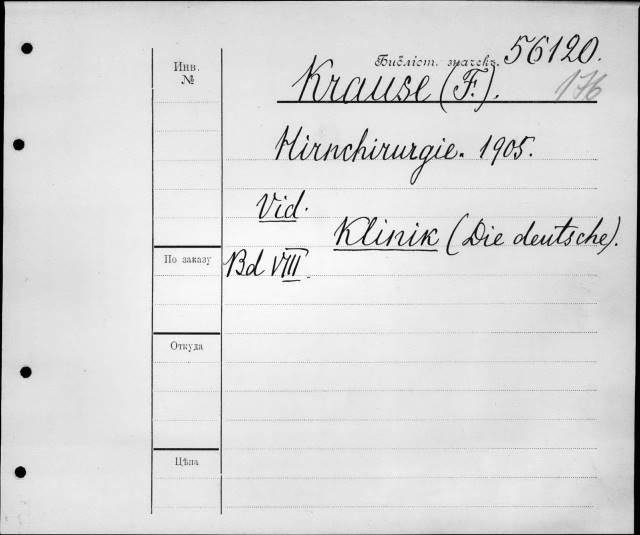 Инв.
№
Библіот. значекъ. 56120.
176
Krause (F.).
Hirnchirurgie. 1905.
Vid.
Klinik (Die deutsche).
По заказу
Bd VIII.
Откуда
Цѣна